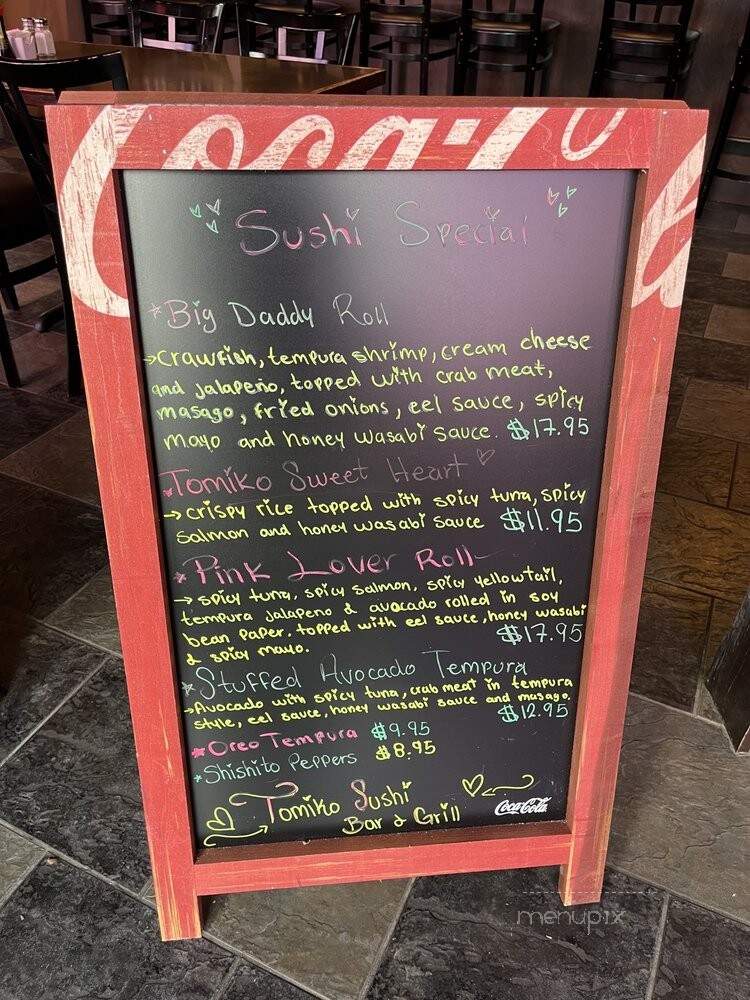 Coca-Cola
Sushi Special
Big Daddy Roll
→ crawfish, tempura shrimp, cream cheese
and jalapeño, topped with crab meat,
masago, fried onions, eel sauce, spicy
mayo and honey wasabi sauce. $17.95
Tomiko Sweet Heart
→ crispy rice topped with spicy tuna, spicy
salmon and honey wasabi sauce $11.95
Pink Lover Roll
→ spicy tuna, spicy salmon, spicy yellowtail,
tempura jalapeno & avocado rolled in soy
bean paper. topped with eel sauce, honey wasabi
& spicy mayo. $17.95
Stuffed Avocado Tempura
→ Avocado with spicy tuna, crab meat in tempura
style, eel sauce, honey wasabi sauce and masago.
$12.95
Oreo Tempura $9.95
Shishito Peppers $8.95
Tomiko Sushi
Bar & Grill
Coca-Cola
menupix